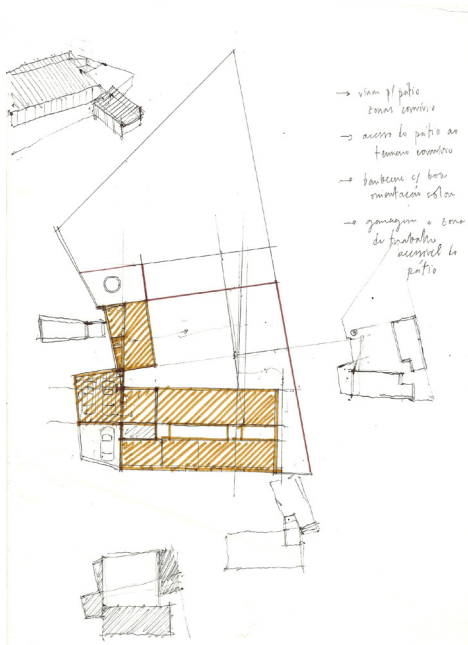 → virar p/ pátio
zonas convívio
→ acesso do pátio ao
terreno convívio
→ barbecue c/ boa
orientação solar
→ garagem e zona
de trabalho
acessível do
pátio